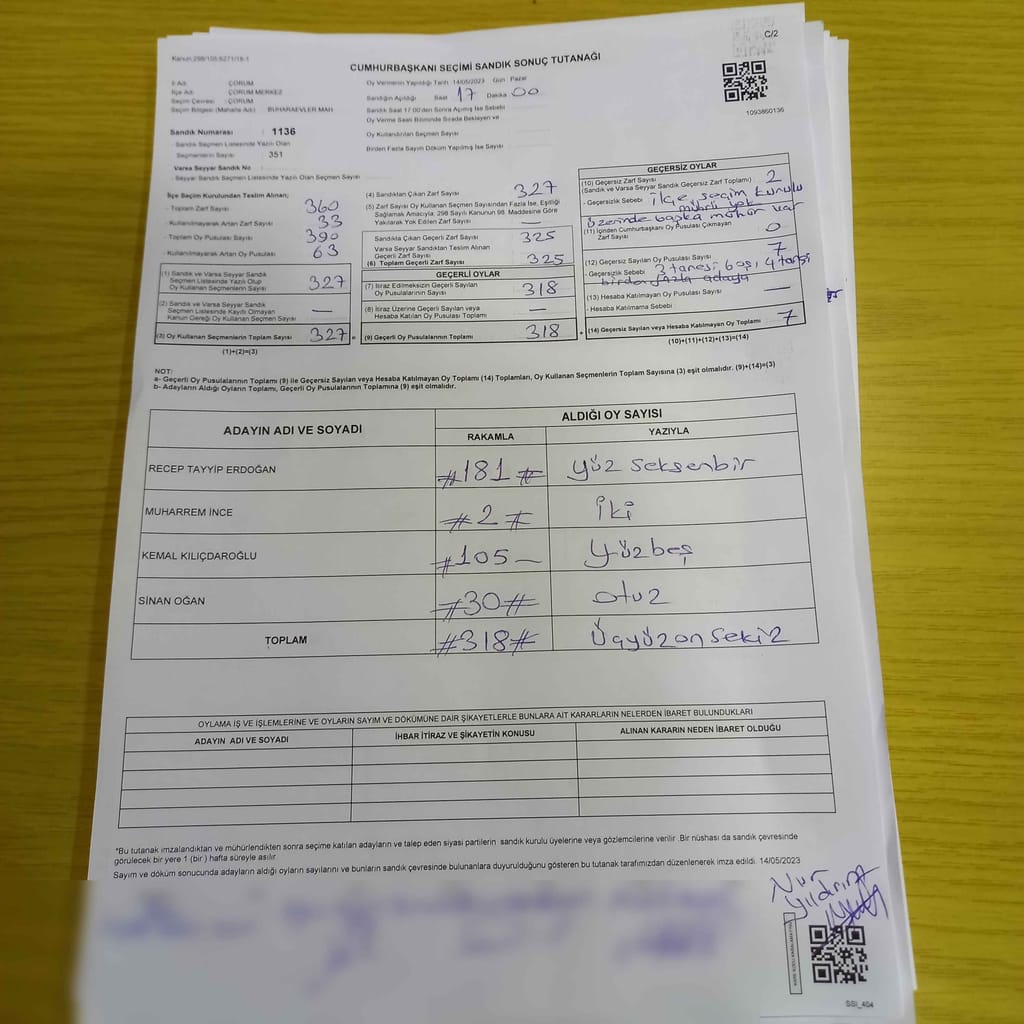 C/2
Kanun:298/105,6271/18-1
CUMHURBAŞKANI SEÇİMİ SANDIK SONUÇ TUTANAĞI
1093860136
İl Adı : ÇORUM
İlçe Adı : ÇORUM MERKEZ
Seçim Çevresi : ÇORUM
Seçim Bölgesi (Mahalle Adı) : BUHARAEVLER MAH.
Sandık Numarası : 1136
- Sandık Seçmen Listesinde Yazılı Olan
Seçmenlerin Sayısı : 351
Varsa Seyyar Sandık No
- Sandık Seçmen Listesinde Yazılı Olan Seçmen Sayısı
Oy Vermenin Yapıldığı Tarih :14/05/2023 Gün : Pazar
Sandığın Açıldığı Saat 17 Dakika 00
Sandık Saat 17:00'den Sonra Açılmış İse Sebebi
Oy Verme Saati Bitiminde Sırada Bekleyen ve
Oy Kullandırılan Seçmen Sayısı
Birden Fazla Sayım Döküm Yapılmış İse Sayısı
İlçe Seçim Kurulundan Teslim Alınan;
- Toplam Zarf Sayısı 360
- Kullanılmayarak Artan Zarf Sayısı 33
- Toplam Oy Pusulası Sayısı 390
- Kullanılmayarak Artan Oy Pusulası 63
(1) Sandık ve Varsa Seyyar Sandık
Seçmen Listesinde Yazılı Olup
Oy Kullanan Seçmenlerin Sayısı 327
(2) Sandık ve Varsa Seyyar Sandık
Seçmen Listesinde Kayıtlı Olmayan
Kanun Gereği Oy Kullanan Seçmen Sayısı —
(3) Oy Kullanan Seçmenlerin Toplam Sayısı 327 =
(1)+(2)=(3)
(4) Sandıktan Çıkan Zarf Sayısı 327
(5) Zarf Sayısı Oy Kullanan Seçmen Sayısından Fazla İse, Eşitliği
Sağlamak Amacıyla; 298 Sayılı Kanunun 98. Maddesine Göre
Yakılarak Yok Edilen Zarf Sayısı —
Sandıkta Çıkan Geçerli Zarf Sayısı 325
Varsa Seyyar Sandıktan Teslim Alınan
Geçerli Zarf Sayısı
(6) Toplam Geçerli Zarf Sayısı 325
GEÇERLİ OYLAR
(7) İtiraz Edilmeksizin Geçerli Sayılan
Oy Pusulalarının Sayısı 318
(8) İtiraz Üzerine Geçerli Sayılan veya
Hesaba Katılan Oy Pusulası Toplamı —
(9) Geçerli Oy Pusulalarının Toplamı 318 +
GEÇERSİZ OYLAR
(10) Geçersiz Zarf Sayısı 2
(Sandık ve Varsa Seyyar Sandık Geçersiz Zarf Toplamı)
- Geçersizlik Sebebi ilçe seçim kurulu
mührü yok
üzerinde başka mühür var
(11) İçinden Cumhurbaşkanı Oy Pusulası Çıkmayan
Zarf Sayısı 0
(12) Geçersiz Sayılan Oy Pusulası Sayısı 7
- Geçersizlik Sebebi 3 tanesi boş, 4 tanesi
birden fazla adaya
(13) Hesaba Katılmayan Oy Pusulası Sayısı —
- Hesaba Katılmama Sebebi
(14) Geçersiz Sayılan veya Hesaba Katılmayan Oy Toplamı 7
(10)+(11)+(12)+(13)=(14)
NOT:
a- Geçerli Oy Pusulalarının Toplamı (9) ile Geçersiz Sayılan veya Hesaba Katılmayan Oy Toplamı (14) Toplamları, Oy Kullanan Seçmenlerin Toplam Sayısına (3) eşit olmalıdır. (9)+(14)=(3)
b- Adayların Aldığı Oyların Toplamı, Geçerli Oy Pusulalarının Toplamına (9) eşit olmalıdır.
ADAYIN ADI VE SOYADI ALDIĞI OY SAYISI
RAKAMLA YAZIYLA
RECEP TAYYİP ERDOĞAN #181# Yüz seksenbir
MUHARREM İNCE #2# İki
KEMAL KILIÇDAROĞLU #105— Yüzbeş
SİNAN OĞAN #30# otuz
TOPLAM #318# Üçyüz on sekiz
OYLAMA İŞ VE İŞLEMLERİNE VE OYLARIN SAYIM VE DÖKÜMÜNE DAİR ŞİKAYETLERLE BUNLARA AİT KARARLARIN NELERDEN İBARET BULUNDUKLARI
ADAYIN ADI VE SOYADI İHBAR İTİRAZ VE ŞİKAYETİN KONUSU ALINAN KARARIN NEDEN İBARET OLDUĞU
*Bu tutanak imzalandıktan ve mühürlendikten sonra seçime katılan adayların ve talep eden siyasi partilerin sandık kurulu üyelerine veya gözlemcilerine verilir. Bir nüshası da sandık çevresinde
görülecek bir yere 1 (bir ) hafta süreyle asılır.
Sayım ve döküm sonucunda adayların aldığı oyların sayılarını ve bunların sandık çevresinde bulunanlara duyurulduğunu gösteren bu tutanak tarafımızdan düzenlenerek imza edildi. 14/05/2023
Nur
Yıldırım
SSİ_404